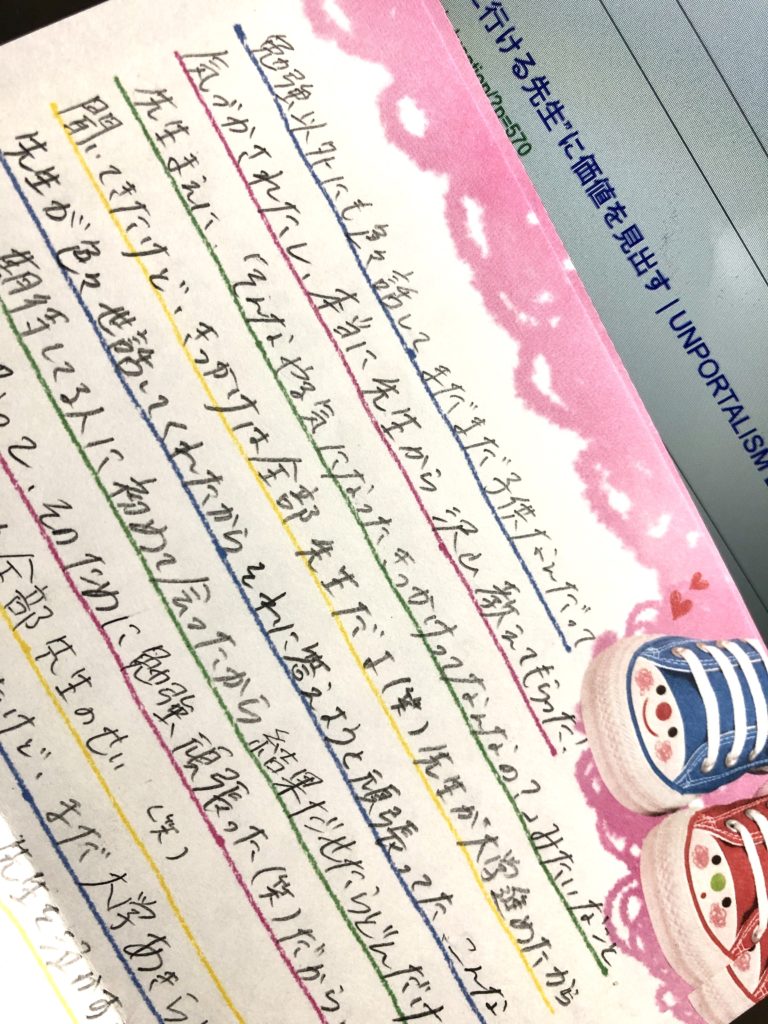 と行ける先生”に価値を見出す | UNPORTALISM
/?p=570
勉強以外にも色々話してまだまだ子供なんだって
気づかされたし、本当に先生から沢山教えてもらった!
先生まえに、「そんなやる気になったきっかけってなんなの?」みたいなこと
聞いてきたけど、きっかけは全部先生だよ(笑)先生が大学進めたから
先生が色々世話してくれたからそれに答えようと頑張ってた。こんな
期待してる人に初めて会ったから結果だせたらどんだけ
って、そのために勉強頑張った(笑)だから
全部先生のせい(笑)
だけど、まだ大学あきら